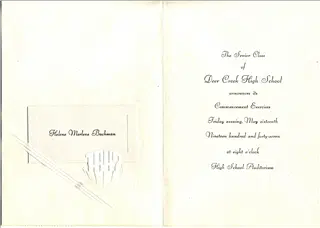 Helena Marlene Buchman
The Senior Class
of
Deer Creek High School
announces its
Commencement Exercises
Friday evening, May sixteenth
Nineteen hundred and forty-seven
at eight o'clock
High School Auditorium